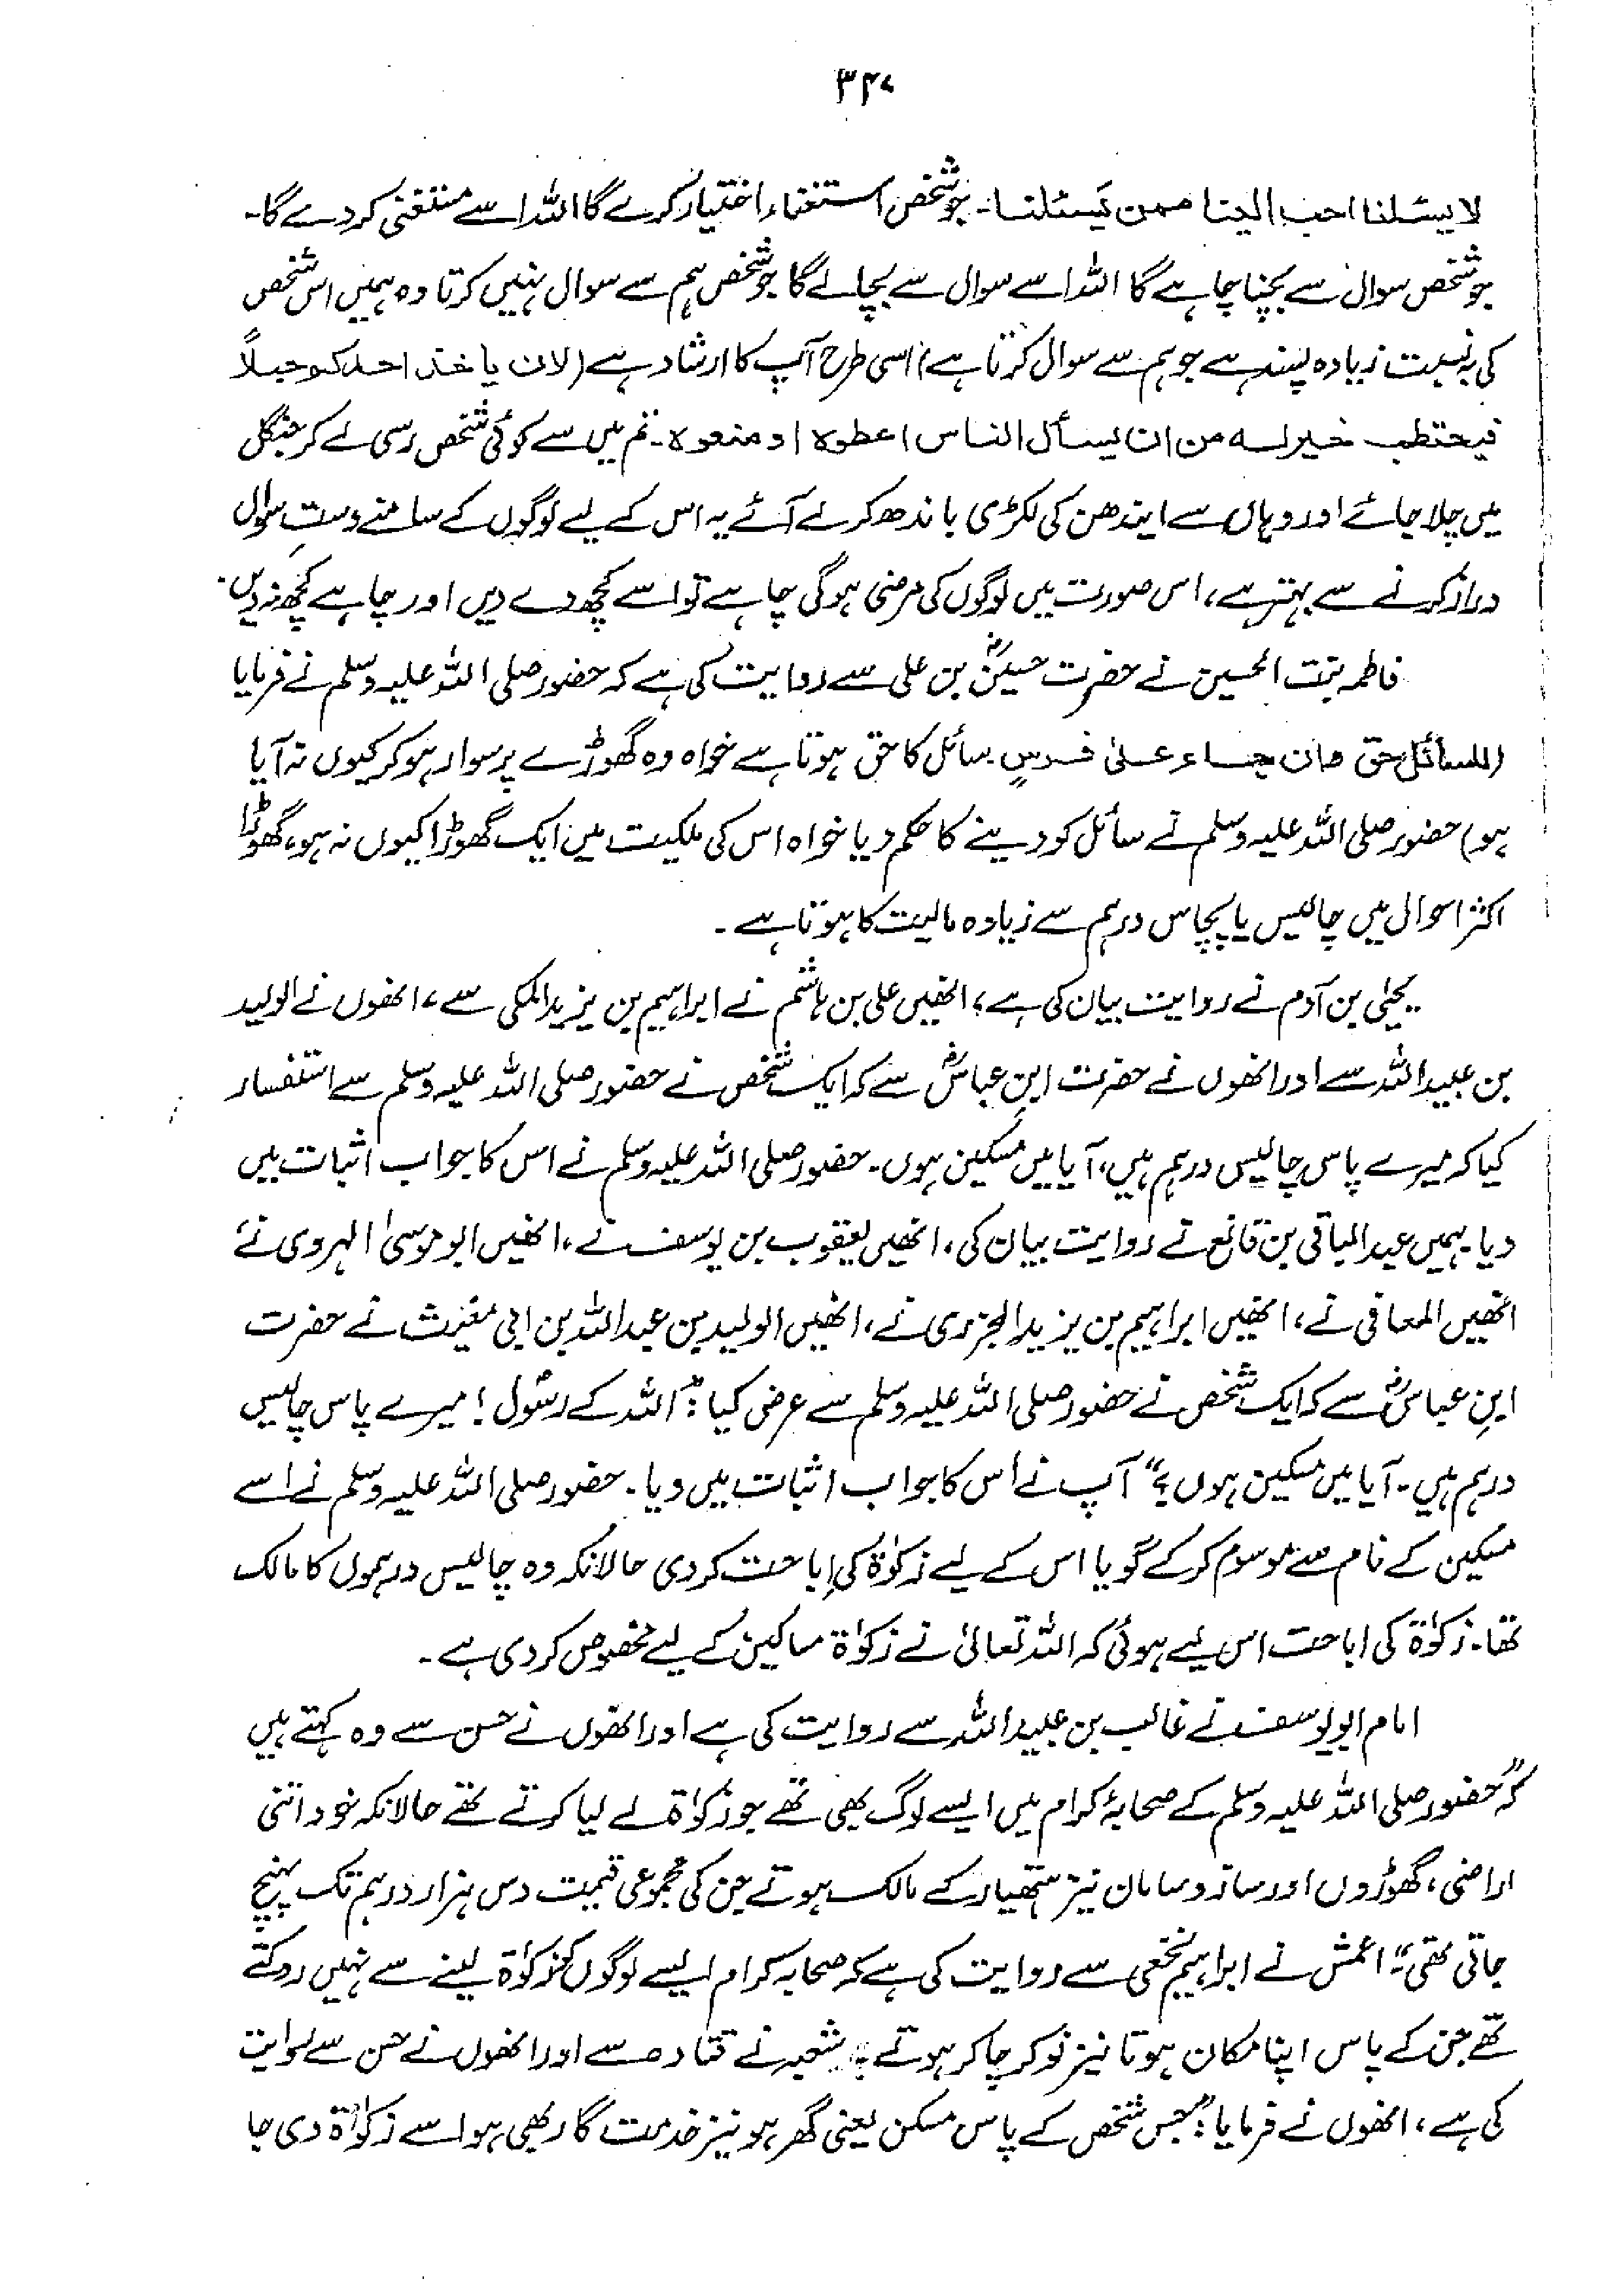 ۳۴۷
لا یسئلنا احب الینا ممن یَسئلنا۔ جو شخص استغناء اختیار کرے گا اللہ اسے مستغنی کر دے گا۔
جو شخص سوال سے بچنا چاہے گا اللہ اسے سوال سے بچالے گا جو شخص ہم سے سوال نہیں کرتا وہ ہمیں اس شخص
کی بہ نسبت زیادہ پسند ہے جو ہم سے سوال کرتا ہے) اسی طرح آپ کا ارشاد ہے (لان یاخذ احدکم حبلاً
فیحتطب خیر لہ من ان یسأل الناس اعطوہ او منعوہ۔ تم میں سے کوئی شخص رسی لے کر جنگل
میں چلا جائے اور وہاں سے ایندھن کی لکڑی باندھ کر لے آئے یہ اس کے لیے لوگوں کے سامنے دستِ سوال
دراز کرنے سے بہتر ہے، اس صورت میں لوگوں کی مرضی ہوگی چاہے تو اسے کچھ دے دیں اور چاہے کچھ نہ دیں۔
فاطمہ بنت الحسین نے حضرت حسینؓ بن علی سے روایت کی ہے کہ حضور صلی اللہ علیہ وسلم نے فرمایا
(للسائل حق وان جاء علیٰ فرسٍ سائل کا حق ہوتا ہے خواہ وہ گھوڑے پر سوار ہو کر کیوں نہ آیا
ہو) حضور صلی اللہ علیہ وسلم نے سائل کو دینے کا حکم دیا خواہ اس کی ملکیت میں ایک گھوڑا کیوں نہ ہو، گھوڑا
اکثر احوال میں چالیس یا پچاس درہم سے زیادہ مالیت کا ہوتا ہے۔
یحییٰ بن آدم نے روایت بیان کی ہے، انھیں علی بن ہاشم نے ابراہیم بن یزید المکی سے، انھوں نے الولید
بن عبیداللہ سے اور انھوں نے حضرت ابنِ عباسؓ سے کہ ایک شخص نے حضور صلی اللہ علیہ وسلم سے استفسار
کیا کہ میرے پاس چالیس درہم ہیں، آیا میں مسکین ہوں۔ حضور صلی اللہ علیہ وسلم نے اس کا جواب اثبات میں
دیا۔ ہمیں عبدالباقی بن قانع نے روایت بیان کی، انھیں یعقوب بن یوسف نے، انھیں ابو موسیٰ الہروی نے
انھیں المعافی نے، انھیں ابراہیم بن یزید الجزری نے، انھیں الولید بن عبداللہ بن ابی مغیث نے حضرت
ابنِ عباسؓ سے کہ ایک شخص نے حضور صلی اللہ علیہ وسلم سے عرض کیا: "اللہ کے رسول! میرے پاس چالیس
درہم ہیں۔ آیا میں مسکین ہوں؟" آپ نے اس کا جواب اثبات میں دیا۔ حضور صلی اللہ علیہ وسلم نے اسے
مسکین کے نام سے موسوم کر کے گویا اس کے لیے زکوٰۃ کی اباحت کر دی حالانکہ وہ چالیس درہموں کا مالک
تھا۔ زکوٰۃ کی اباحت اس لیے ہوئی کہ اللہ تعالیٰ نے زکوٰۃ مساکین کے لیے مخصوص کر دی ہے۔
امام ابو یوسف نے غالب بن عبیداللہ سے روایت کی ہے اور انھوں نے حسن سے وہ کہتے ہیں
کہ "حضور صلی اللہ علیہ وسلم کے صحابۂ کرام میں ایسے لوگ بھی تھے جو زکوٰۃ لے لیا کرتے تھے حالانکہ خود اتنی
اراضی، گھوڑوں اور ساز و سامان نیز ہتھیار کے مالک ہوتے جن کی مجموعی قیمت دس ہزار درہم تک پہنچ
جاتی تھی"۔ اعمش نے ابراہیم نخعی سے روایت کی ہے کہ صحابہ کرام ایسے لوگوں کو زکوٰۃ لینے سے نہیں روکتے
تھے جن کے پاس اپنا مکان ہوتا نیز نوکر چاکر ہوتے۔ شعبہ نے قتادہ سے اور انھوں نے حسن سے روایت
کی ہے، انھوں نے فرمایا: "جس شخص کے پاس مسکن یعنی گھر ہو نیز خدمت گار بھی ہو اسے زکوٰۃ دی جا